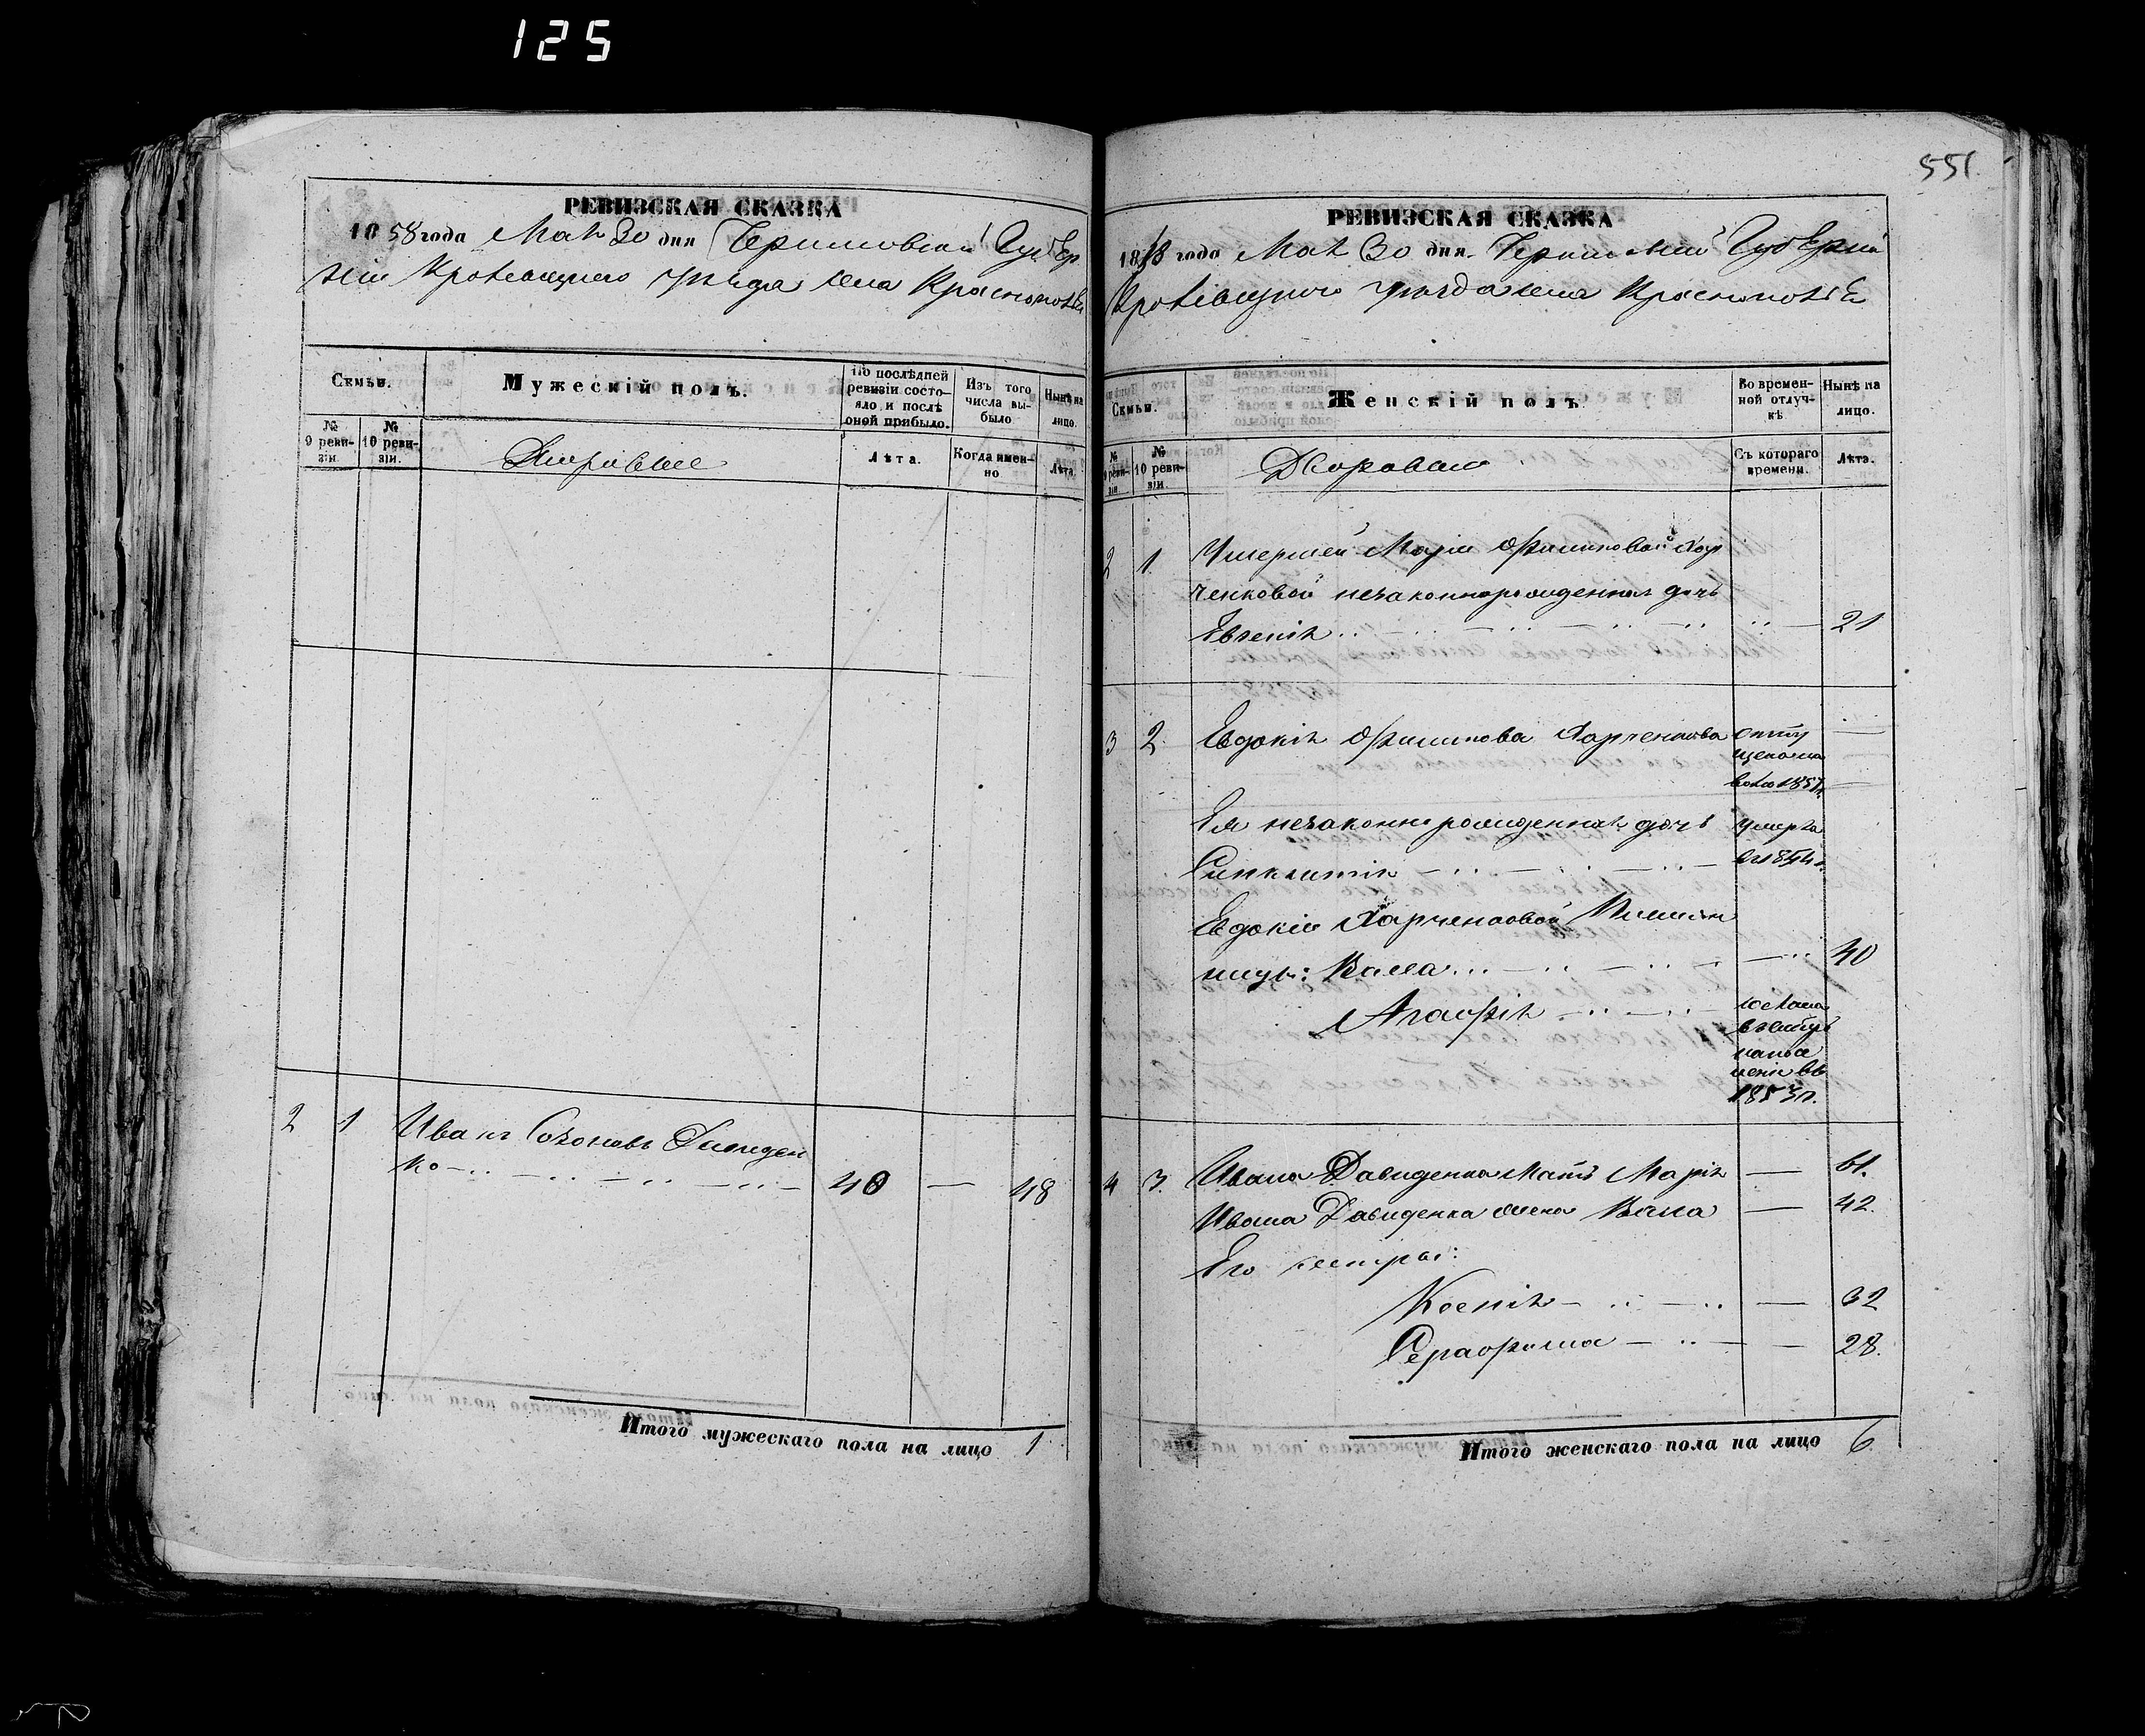 125
551.
РЕВИЗСКАЯ СКАЗКА
1858 года Мая 30 дня Черниговской Губер
ніи Кролевецкаго уѣзда села Краснополья
Семьи.
Мужескій полъ.
По послѣдней ревизіи состояло и послѣ оной прибыло.
Изъ того числа выбыло
Нынѣ на лицо.
№ 9 ревизіи.
№ 10 ревизіи.
Дворовые
Лѣта.
Когда именно
Лѣта.
2 1 Иванъ Давиден
ко 40 — 48
Итого мужескаго пола на лицо 1
РЕВИЗСКАЯ СКАЗКА
1858 года Мая 30 дня Черниговской Губерніи
Кролевецкаго уѣзда села Краснополья
Семьи.
Женскій полъ.
Во временной отлучкѣ
Нынѣ на лицо.
№ 9 ревизіи
№ 10 ревизіи.
Дворовые
Съ котораго времени.
Лѣта.
2 1. Умершей Маріи Филиповой Хар
ченковой незаконнорожденная дочь
Евгенія 21
3 2. Евдокія Филипова Харченкова отпу
щена на
волю 1857г.
Ея незаконнорожденная дочь умерла
Синклитія в 1854г.
Евдокіи Харченковой племян
ницы: Васса 40
Агафія
1853г.
4 3. Ивана Давиденка мать Марія — 61.
Ивана Давиденка жена Васса — 42.
Его сестры:
Ксенія — 32
Серафима — 28.
Итого женскаго пола на лицо 6